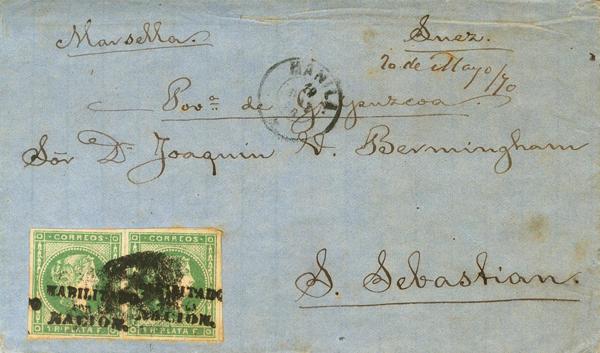 Marsella.
Suez.
20 de Mayo/70
MANILA
Pov.ª de Guipuzcoa
Sõr Dⁿ Joaquin V. Bermingham
S. Sebastian.
CORREOS CORREOS
HABILITADO
POR LA
NACION. NACION.
1 Rˡ PLATA F. 1 Rˡ PLATA F.